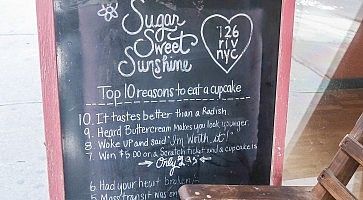 Sugar
Sweet
Sunshine
126
riv
nyc
Top 10 reasons to eat a cupcake
10. It tastes better than a Radish.
9. Heard Buttercream Makes you look younger.
8 Woke up and said "I'm Worth it!"
7. Win $5.00 on a Scratch ticket and a cupcake is
Only
6 Had your heart broken
5. Mass transit was